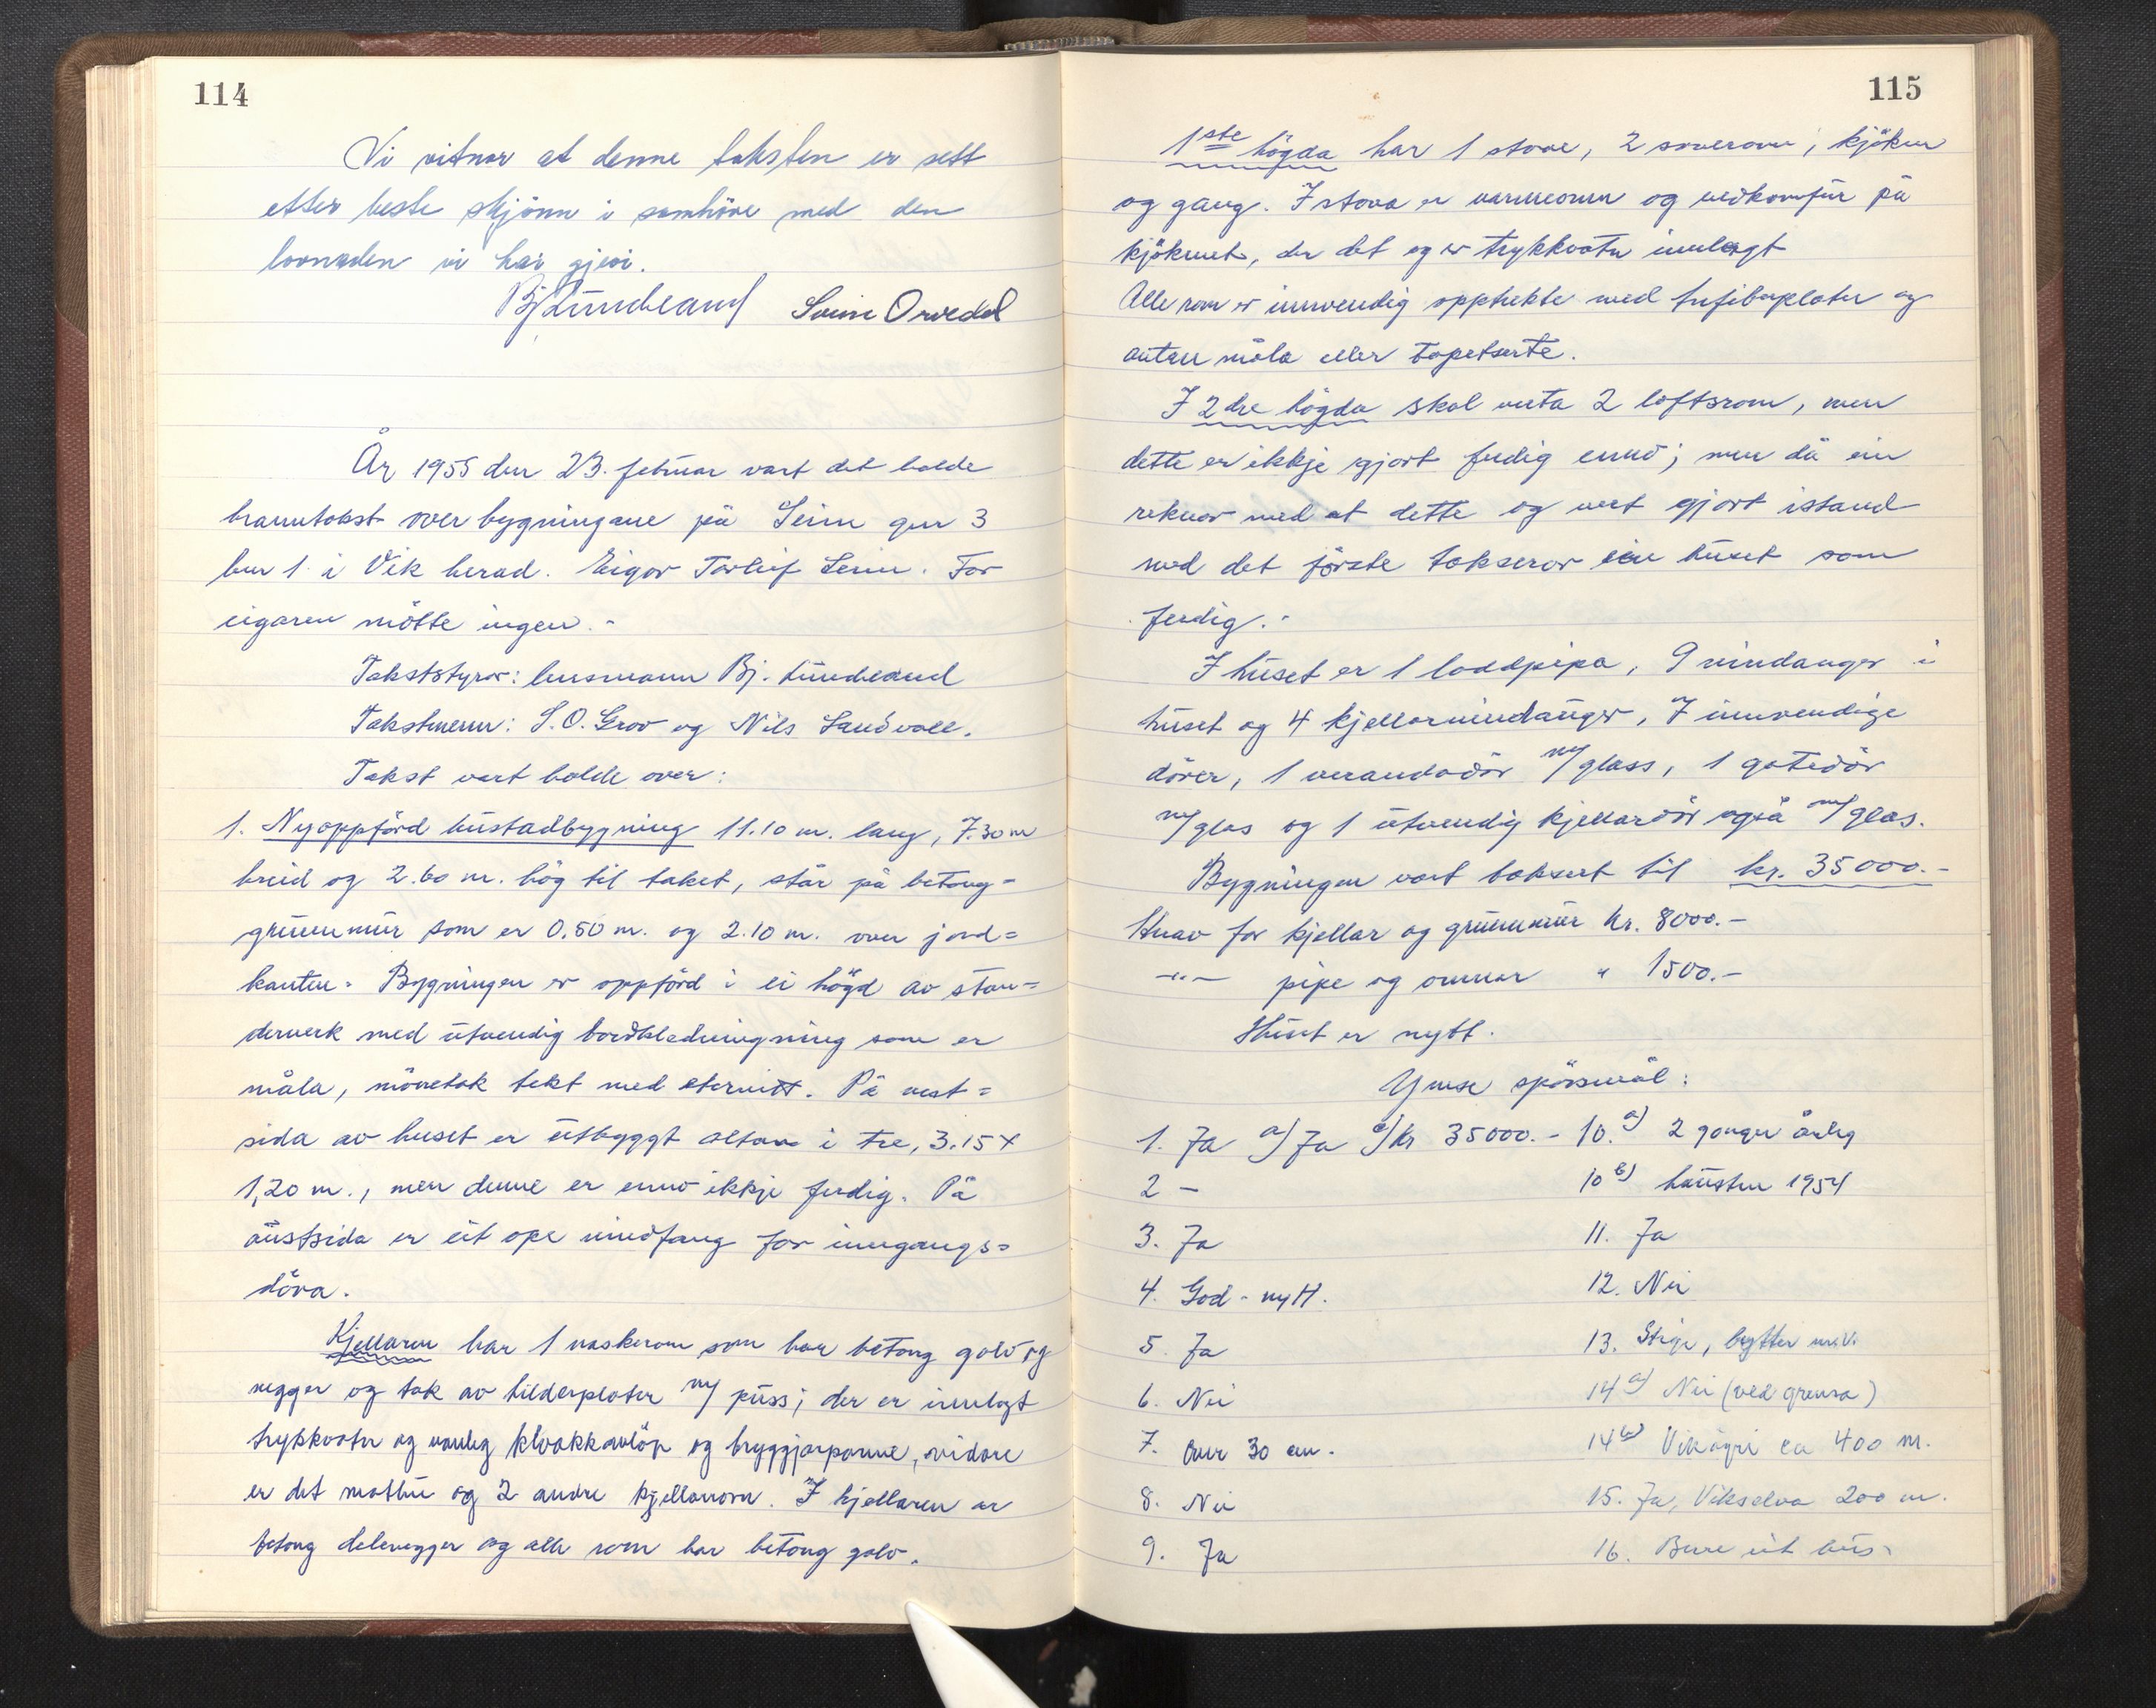 114
Vi vitnar at denne taksten er sett
etter beste skjönn i samhöve med den
lovnaden vi har gjevi.
Bj Lundeland Svein Orvedal
År 1955 den 23. februar vart det halde
branntakst over bygningane på Seim gnr 3
bnr 1 i Vik herad. Eigar Torleif Seim. For
eigaren mötte ingen.-
Takststyrar: lensmann Bj. Lundeland
Takstmenn: S.O. Grov og Nils Sandvoll.
Takst vart halde over:
1. Nyoppförd bustadbygning 11.10 m. lang, 7.30 m
breid og 2.60 m. hög til taket, står på betong=
grunnmur som er 0.50 m. og 2.10 m. over jord=
kanten. Bygningen er oppförd i ei högd av sten=
derverk med utvendig bordkledningning som er
måla, mönetak tekt med eternitt. På vest=
sida av huset er utbyggt altan i tre, 3.15 x
1,20 m., men denne er ennå ikkje ferdig. På
austsida er eit ope vindfang for inngangs=
döra.
Kjellaren har 1 vaskerom som har betong golv og
vegger og tak av hilderplater m/ puss; der er innlagt
trykkvatn og vanleg kloakkavlöp og bryggjarpanne, vidare
er det matbu og 2 andre kjellarrom. I kjellaren er
betong delevegger og alle rom har betong golv.
115
1ste högda har 1 stove, 2 soverom, kjöken
og gang. I stova er varmeomn og vedkomfür på
kjökenet, der det og er trykkvatn innlagt
Alle rom er innvendig opptrekte med trefiberplater og
anten måla eller tapetserte.
I 2dre högda skal verta 2 loftsrom, men
dette er ikkje gjort ferdig ennå; men då ein
reknar med at dette og vert gjort istand
med det förste takserar ein huset som
ferdig.-
I huset er 1 loddpipa, 9 vindauger i
huset og 4 kjellarvindauger, 7 innvendige
dörer, 1 verandadör m/ glass, 1 gatedör
m/ glas og 1 utvendig kjellardör også m/ glas.
Bygningen vart taksert til kr. 35000.-
Herav for kjellar og grunnmur kr. 8000.-
-"- pipe og omnar " 1500.-
Huset er nytt.
Ymse spörsmål:
1. Ja a) Ja c) kr 35000.- 10.a) 2 gonger årleg
2 - 10 b) hausten 1954
3. Ja 11. Ja
4. God - nytt. 12. Nei
5. Ja 13. Stige, bytter m.v.
6. Nei 14 a) Nei (ved grensa)
7. Over 30 cm. 14 b) Vikøyri ca 400 m.
8. Nei 15. Ja, Vikselva 200 m.
9. Ja 16. Bere eit hus.